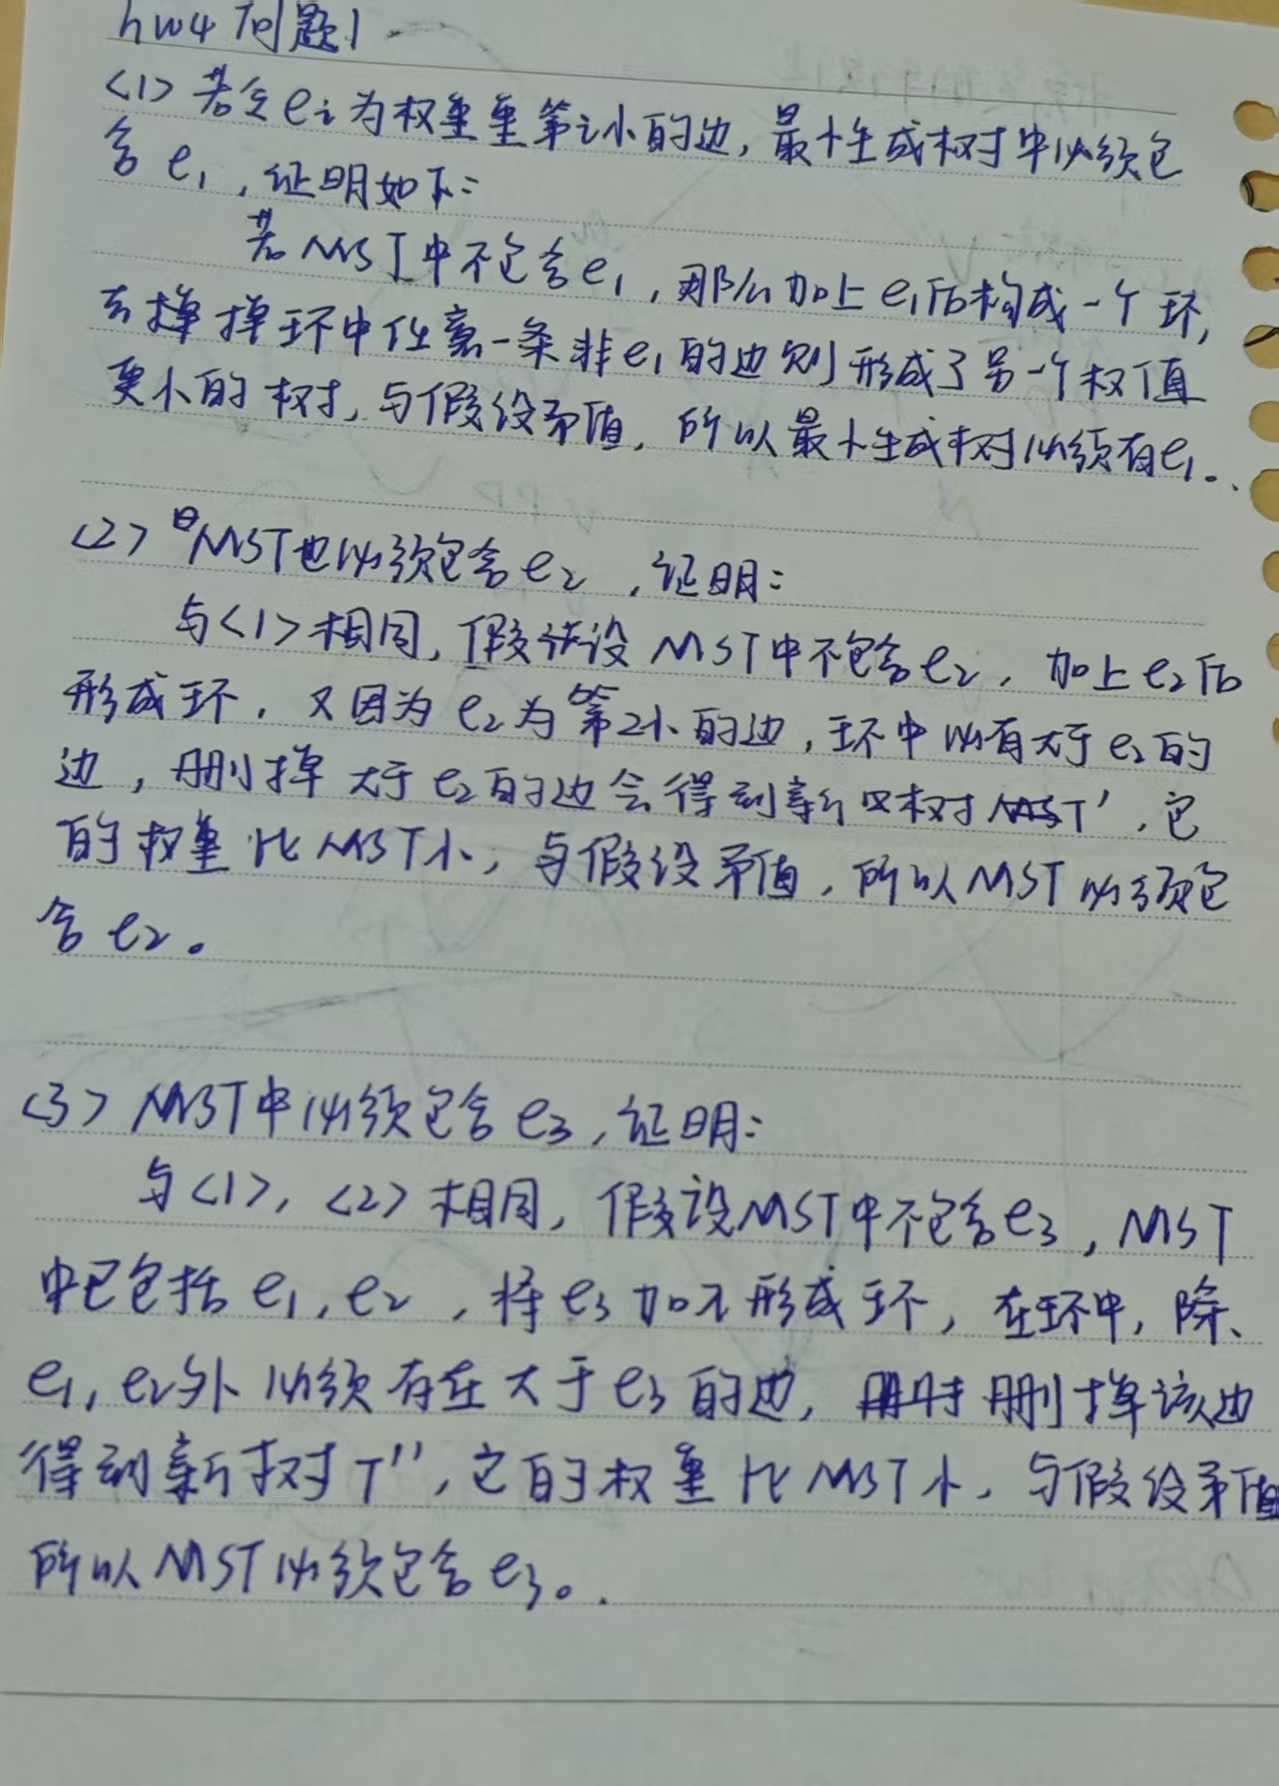 hw4 问题1
<1> 若令ei为权重重第i小的边, 最小生成树中必须包
含 e1 , 证明如下:
若MST中不包含e1 , 那么加上e1后构成一个环,
去掉掉环中任意一条非e1的边则形成了另一个权值
更小的树, 与假设矛盾, 所以最小生成树必须有e1。
<2> MST也必须包含e2 , 证明:
与<1>相同, 假设设 MST中不包含e2 , 加上e2后
形成环, 又因为e2为第2小的边, 环中必有大于e2的
边, 删掉大于e2的边会得到新树MST' , 它
的权重比MST小, 与假设矛盾, 所以MST必须包
含e2。
<3> MST中必须包含e3 , 证明:
与<1>, <2>相同, 假设MST中不包含e3 , MST
中已包括e1 , e2 , 将e3加入形成环, 在环中, 除
e1, e2外必须存在大于e3的边, 删掉该边
得到新树T'' , 它的权重比MST小, 与假设矛盾
所以MST必须包含e3。